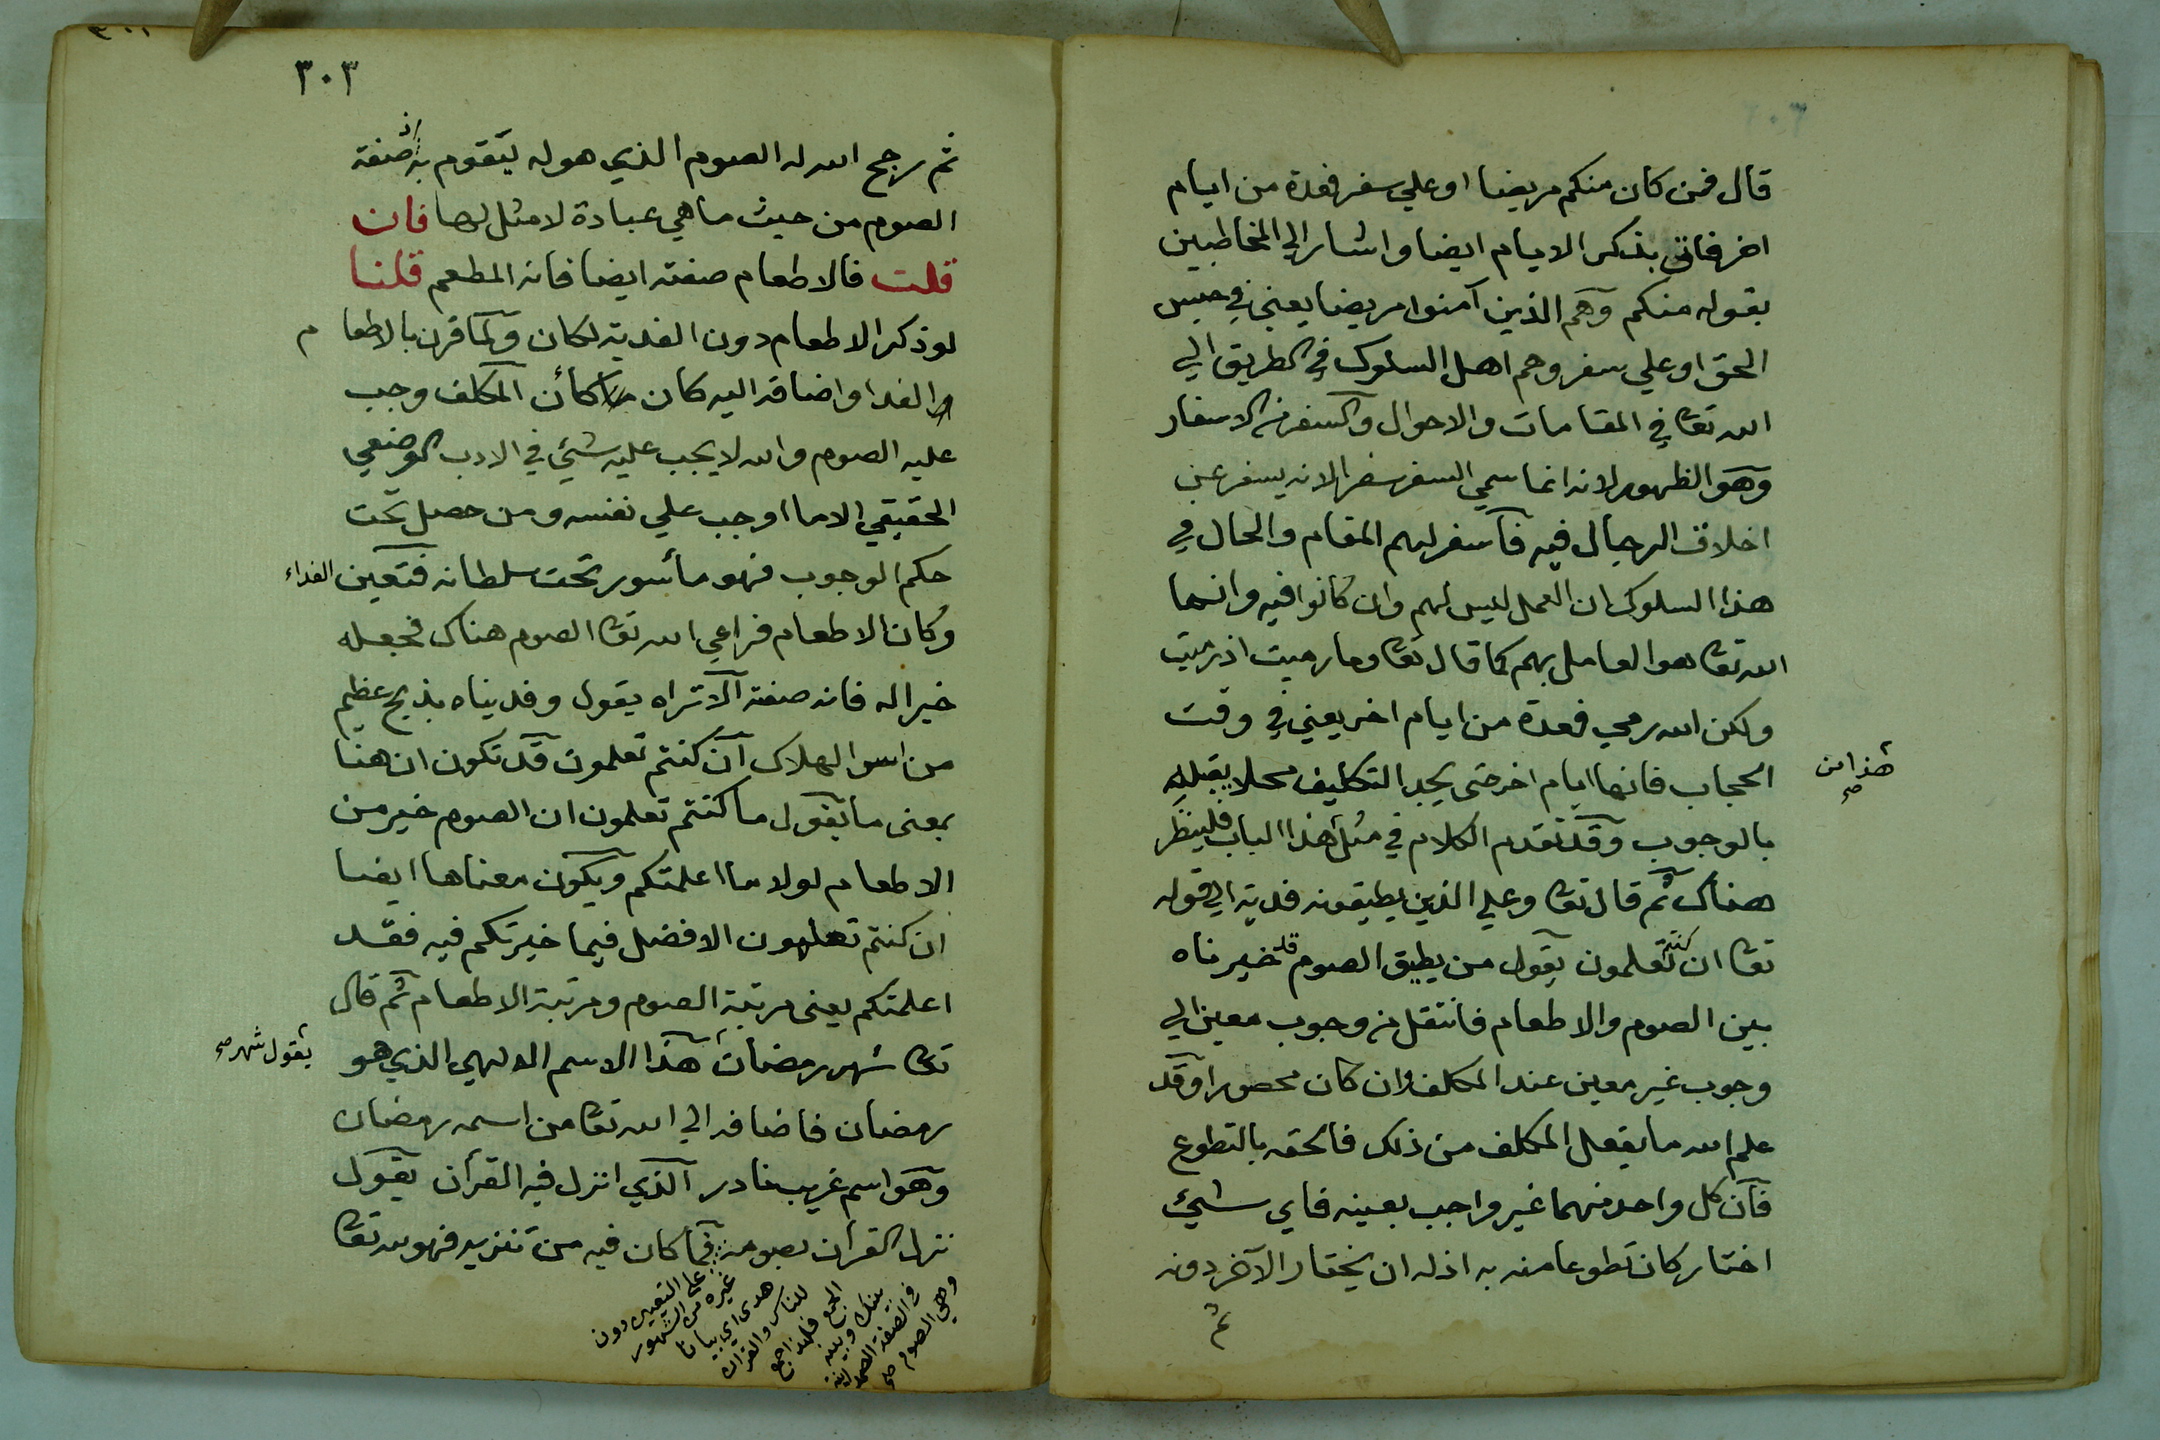 قال فمن كان منكم مريضا او علي سفر فعدة من ايام
اخر فاتي بذكر الايام ايضا واشار الي المخاطبين
بقوله منكم وهم الذين آمنوا مريضا يعني في حبس
الحق او علي سفر وهم اهل السلوك في الطريق الي
الله تعا في المقامات والاحوال والسفر من الاسفار
وهو الظهور لانه انما سمي السفر سفرا لانه يسفر عن
اخلاق الرجال فيه فاسفر لهم المقام والحال في
هذا السلوك ان العمل ليس لهم وان كانوا فيه وانما
الله تعا هو العامل بهم كما قال تعا وما رميت اذ رميت
ولكن الله رمي فعدة من ايام اخر يعني في وقت
الحجاب فانها ايام اخر حتى يجد التكليف محلا يقبله
هذا من صح
بالوجوب وقد تقدم الكلام في مثل هذا الباب فلينظر
هناك ثم قال تعا وعلي الذين يطيقونه فدية الي قوله
تعا ان كنتم تعلمون يقول من يطيق الصوم قد خيرناه
بين الصوم والاطعام فانتقل من وجوب معين الي
وجوب غير معين عند المكلف وان كان محصورا وقد
علم الله ما يفعل المكلف من ذلك فالحقه بالتطوع
فان كل واحد منهما غير واجب بعينه فاي شئ
اختار كان تطوعا منه به اذ له ان يختار الآخر دونه
ثم
٣٠٣
ثم رجح الله له الصوم الذي هو له ليقوم به اذ صفة
الصوم من حيث ما هي عبادة لا مثل لها فان
قلت فالاطعام صفته ايضا فانه المطعم قلنا
لو ذكر الاطعام دون الفدية لكان ولما قرن بالاطعام
الفدا واضافه اليه كان كأن المكلف وجب
عليه الصوم والله لا يجب عليه شئ في الادب الوضعي
الحقيقي الا ما اوجب علي نفسه ومن حصل تحت
حكم الوجوب فهو مأسور تحت سلطانه فتعين الفداء
وكان الاطعام فراعي الله تعا الصوم هناك فجعله
خيرا له فانه صفته الا تراه يقول وفديناه بذبح عظيم
من اسر الهلاك ان كنتم تعلمون قد تكون ان هنا
بمعنى ما يقول ما كنتم تعلمون ان الصوم خير من
الاطعام لولا ما اعلمتكم ويكون معناها ايضا
ان كنتم تعلمون الافضل فيما خيرتكم فيه فقد
اعلمتكم يعنى مرتبة الصوم ومرتبة الاطعام ثم قال
تعا شهر رمضان هذا الاسم الالهي الذي هو
يقول شهر صح
رمضان فاضافه الي الله تعا من اسمه رمضان
وهو اسم غريب نادر الذي انزل فيه القرآن يقول
نزل القرآن بصومه فما كان فيه من تنزيه فهو لله تعا
علي التعيين دون
غيره من الشهور
هدى اي بيانا
للناس والقرآن
الجمع فلهذا جمع
بينك وبينه
في الصفة الصمدانية
وهي الصوم صح